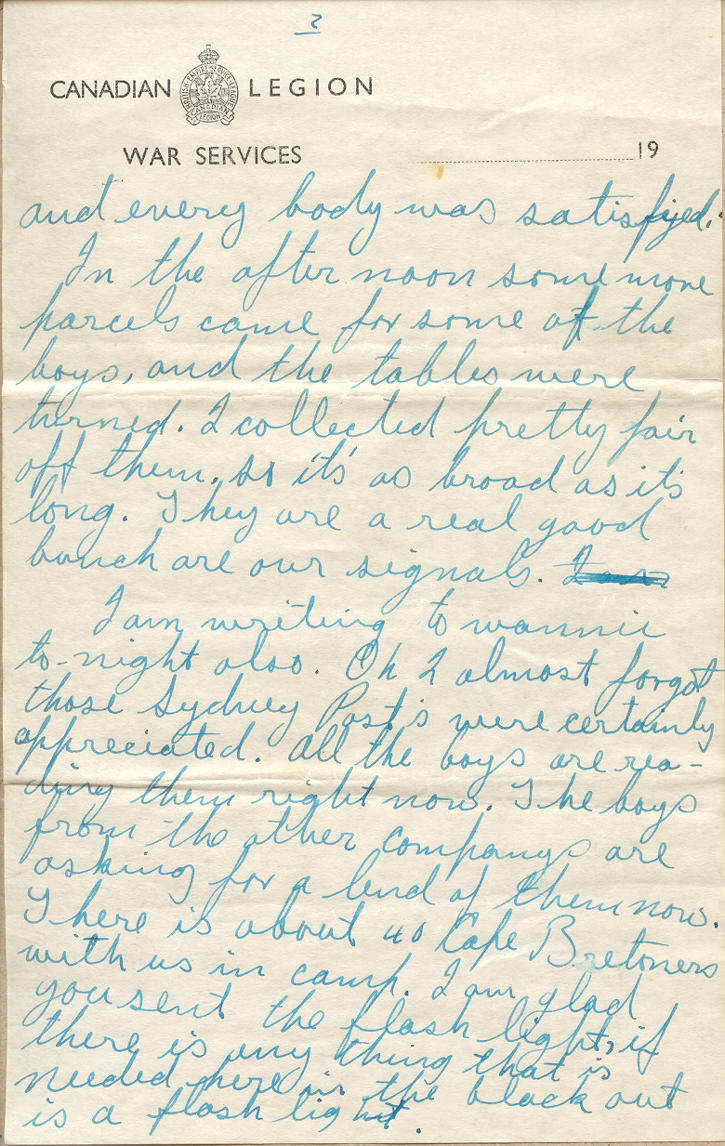 2
CANADIAN LEGION
BRITISH EMPIRE SERVICE LEAGUE
CANADIAN LEGION
WAR SERVICES
19
and everey body was satisfyed.
In the after noon some more
parcels came for some of the
boys, and the tables were
turned. I collected pretty fair
off them, so it's as broad as it's
long. They are a real good
bunch are our signals. I am
I am writing to wannie
to-night also. Oh I almost forgot
those Sydney Post's were certainly
appreciated. All the boys are rea-
ding them right now. The boys
from the other companys are
asking for a lend of them now.
There is about 40 Cape Bretoners
with us in camp. I am glad
you sent the flash light, if
there is any thing that is
needed here in the black out
is a flash light.